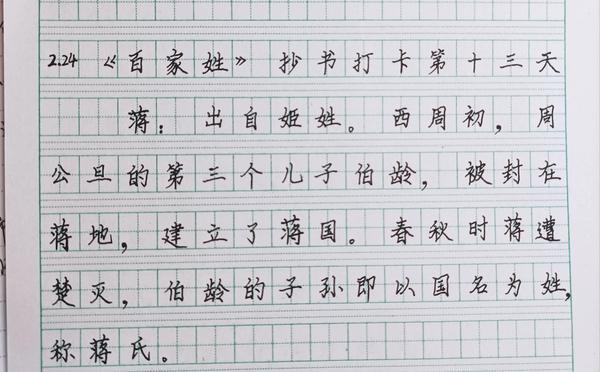 2.24 《百家姓》 抄书打卡第十三天
蒋：出自姬姓。西周初，周
公旦的第三个儿子伯龄，被封在
蒋地，建立了蒋国。春秋时蒋遭
楚灭，伯龄的子孙即以国名为姓，
称蒋氏。